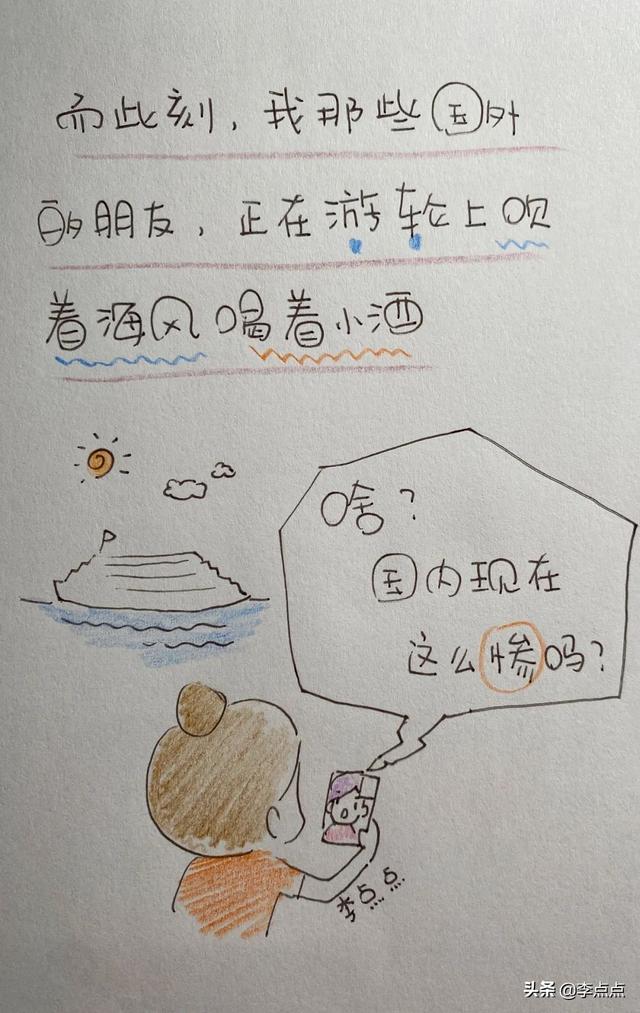 而此刻，我那些国外
的朋友，正在游轮上吹
着海风喝着小酒
啥？
国内现在
这么惨吗？
李点点
头条 @李点点